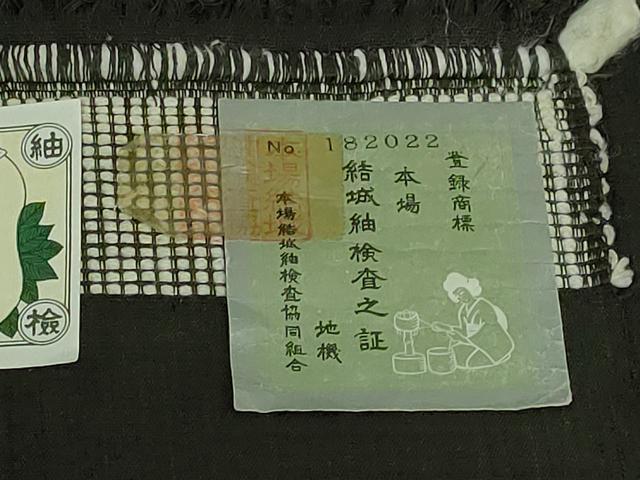 No 182022
登録商標
本場
結城紬検査之証
地機
本場結城紬検査協同組合
紬
検